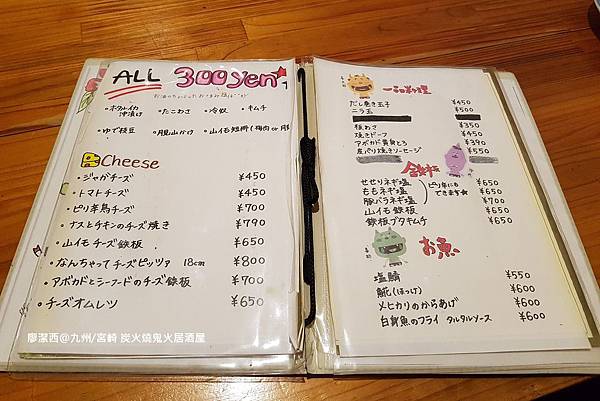 ALL 300yen
・ホタルイカ沖漬け ・たこわさ ・冷奴 ・キムチ
・ゆで枝豆 ・月見山かけ ・山イモ短冊(梅肉or
Cheese
・ジャがチーズ ¥450
・トマトチーズ ¥450
・ピリ辛馬チーズ ¥700
・ナスとチキンのチーズ焼き ¥790
・山イモチーズ鉄板 ¥650
・なんちゃってチーズピッツァ 18cm ¥800
・アボカドとシーフードのチーズ鉄板 ¥700
・チーズオムレツ ¥650
一品料理
だし巻き玉子 ¥450
ニラ玉 ¥500
板わさ ¥350
焼きドーフ ¥450
アボカド ¥390
皮パリ焼きソーセージ ¥550
鉄板
せせりネギ塩 ¥650
ももネギ塩 ¥650
豚バラネギ塩 ¥700
ピリ辛にもできます
山イモ鉄板 ¥650
鉄板ブタキムチ ¥650
お魚
塩鯖 ¥550
𩸽(ほっけ) ¥600
メヒカリのからあげ ¥600
白身魚のフライ タルタルソース ¥600
廖潔西@九州/宮崎 炭火燒鬼火居酒屋